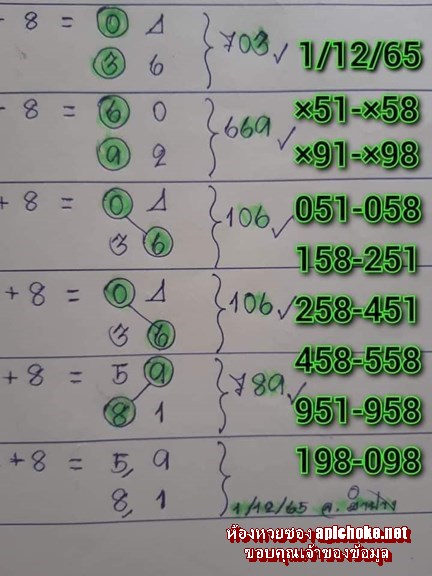 - 8 = 0 1 } 703 ✓
3 6
1/12/65
- 8 = 6 0 } 669 ✓
9 2
×51-×58
×91-×98
+ 8 = 0 1 } 106 ✓
3 6
051-058
158-251
+ 8 = 0 1 } 106 ✓
3 6
258-451
458-558
+ 8 = 5 9 } 789 ✓
8 1
951-958
+ 8 = 5, 9 }
8, 1
198-098
1/12/65
ห้องหวยซอง apichoke.net
ขอบคุณเจ้าของข้อมูล